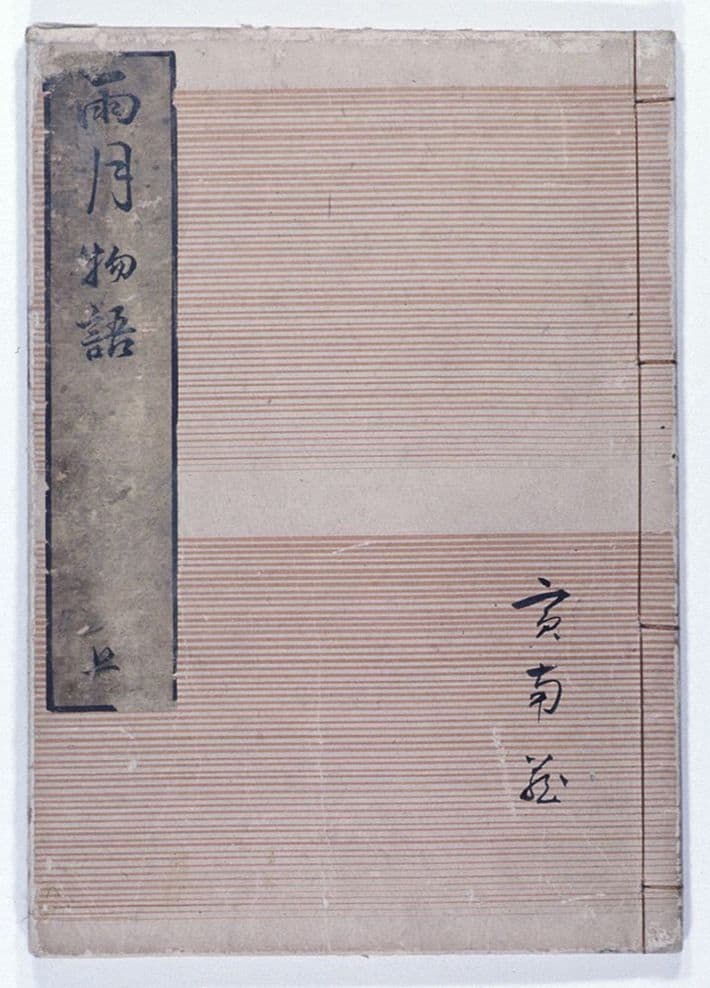 雨月物語
上
南蔵